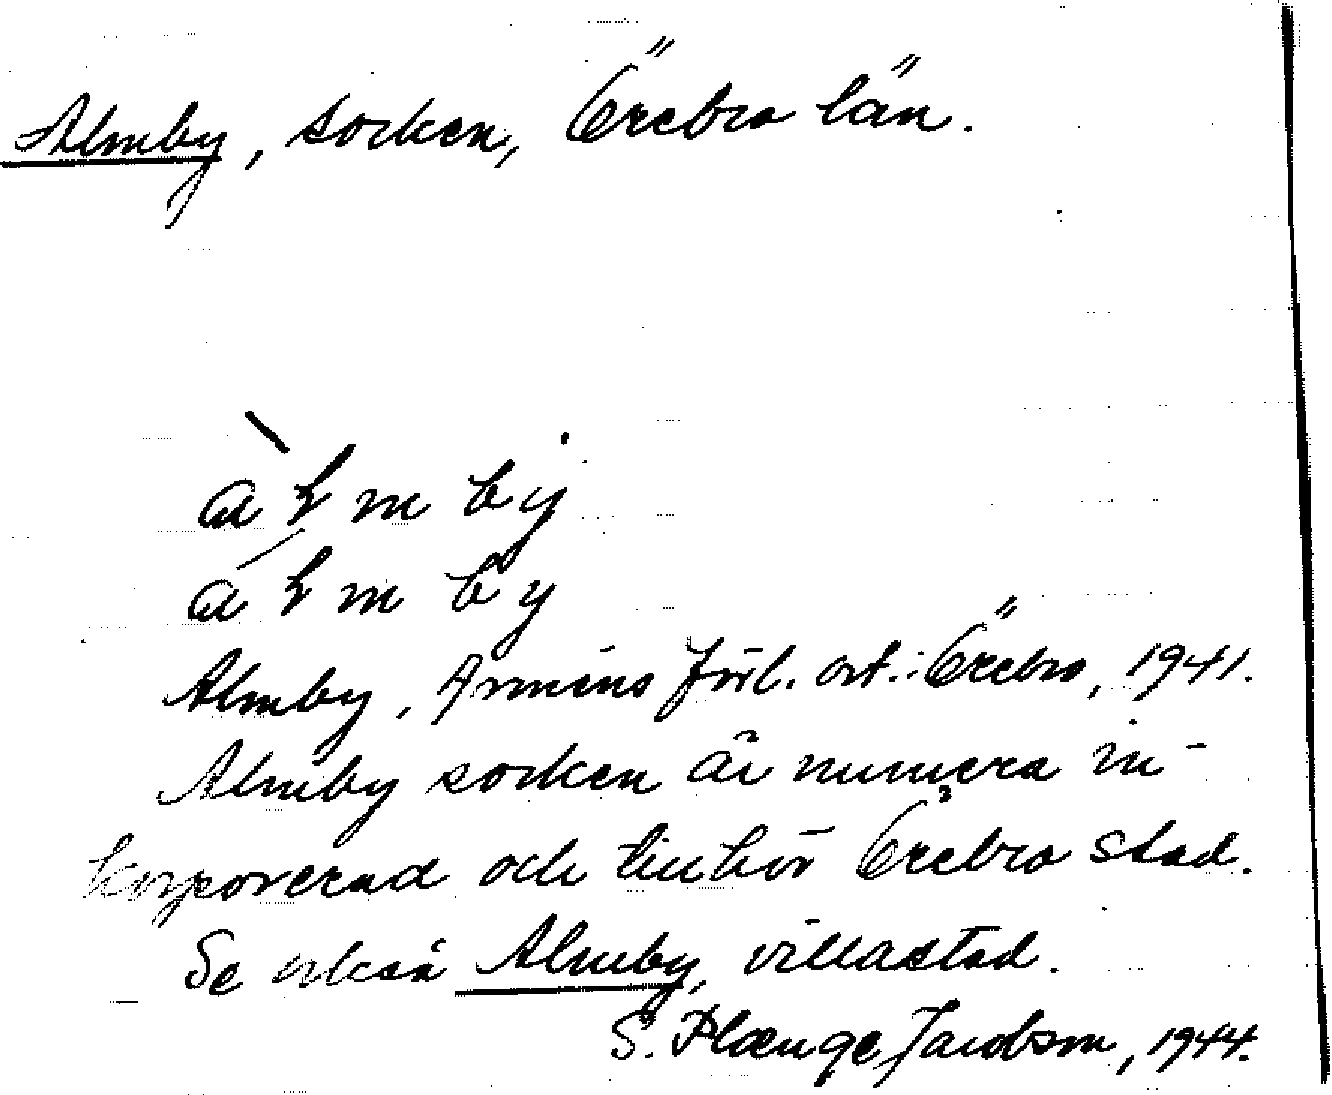 Almby, socken, Örebro län.
àlmby
álmby
Almby, Arméns förl. ort.: Örebro, 1941.
Almby socken är numera in-
korporerad och tillhör Örebro stad.
Se också Almby, villastad.
S. Plænge Jacobson, 1944.